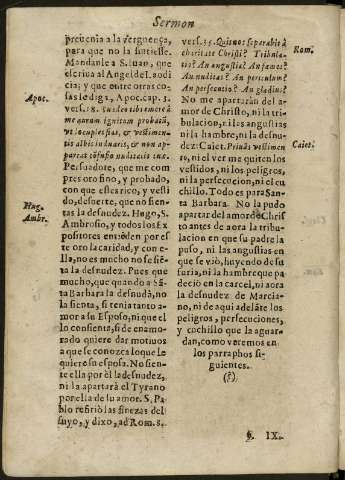 Sermon
preuenia a la verguença,
para que no la sintiesse.
Mandanle a S. Iuan, que
escriua al Angel de Laodi
cia; y que entre otras co-
sas le diga, Apoc. cap. 3.
vers. 18. Suadeo tibi emere à
me aurum ignitum probatũ,
vt locuples fias, & vestimen-
tis albis induaris, & non ap-
pareat cõfusio nuditatis tuæ.
Persuadote, que me com
pres oro fino, y probado,
con que estea rico, y vesti
do, de suerte, que no sien-
tas la desnudez. Hugo, S.
Ambrosio, y todos los Ex
positores entiẽden por es
te oro la caridad, y con e-
lla, no es mucho no se siẽ-
ta la desnudez. Pues que
mucho, que quando a Sã-
ta Barbara la desnudã, no
la sienta, si tenia tanto a-
mor a su Esposo, ni que el
lo consienta, si de enamo-
rado quiere dar motiuos
a que se conozca lo que le
quiere su esposa. No sien-
te ella por èl la desnudez,
ni la apartarà el Tyrano
por ella de su amor. S. Pa
blo refiriò las finezas del
suyo, y dixo, ad Rom. 8.
Apoc.
Hug.
Ambr.
vers. 35. Quis nos separabit à
charitate Christi? Tribula-
tio? An angustia? An fames?
An nuditas? An periculum?
An persecutio? An gladius?
No me apartaràn del a-
mor de Christo, ni la tri-
bulacion, ni las angustias
ni la hambre, ni la desnu-
dez: Caiet. Priuãs vestimen
to, ni el ver me quiten los
vestidos, ni los peligros,
ni la persecucion, ni el cu
chillo. Todo es para San-
ta Barbara. No la pudo
apartar del amor de Chris
to antes de aora la tribu-
lacion en que su padre la
puso, ni las angustias en
que se viò, huyendo de su
furia, ni la hambre que pa
deciò en la carcel, ni aora
la desnudez de Marcia-
no, ni de aqui adelãte los
peligros, persecuciones,
y cuchillo que la aguar-
dan, como veremos en
los parraphos si-
guientes.
(?)
Rom.
Caiet.
§. IX.